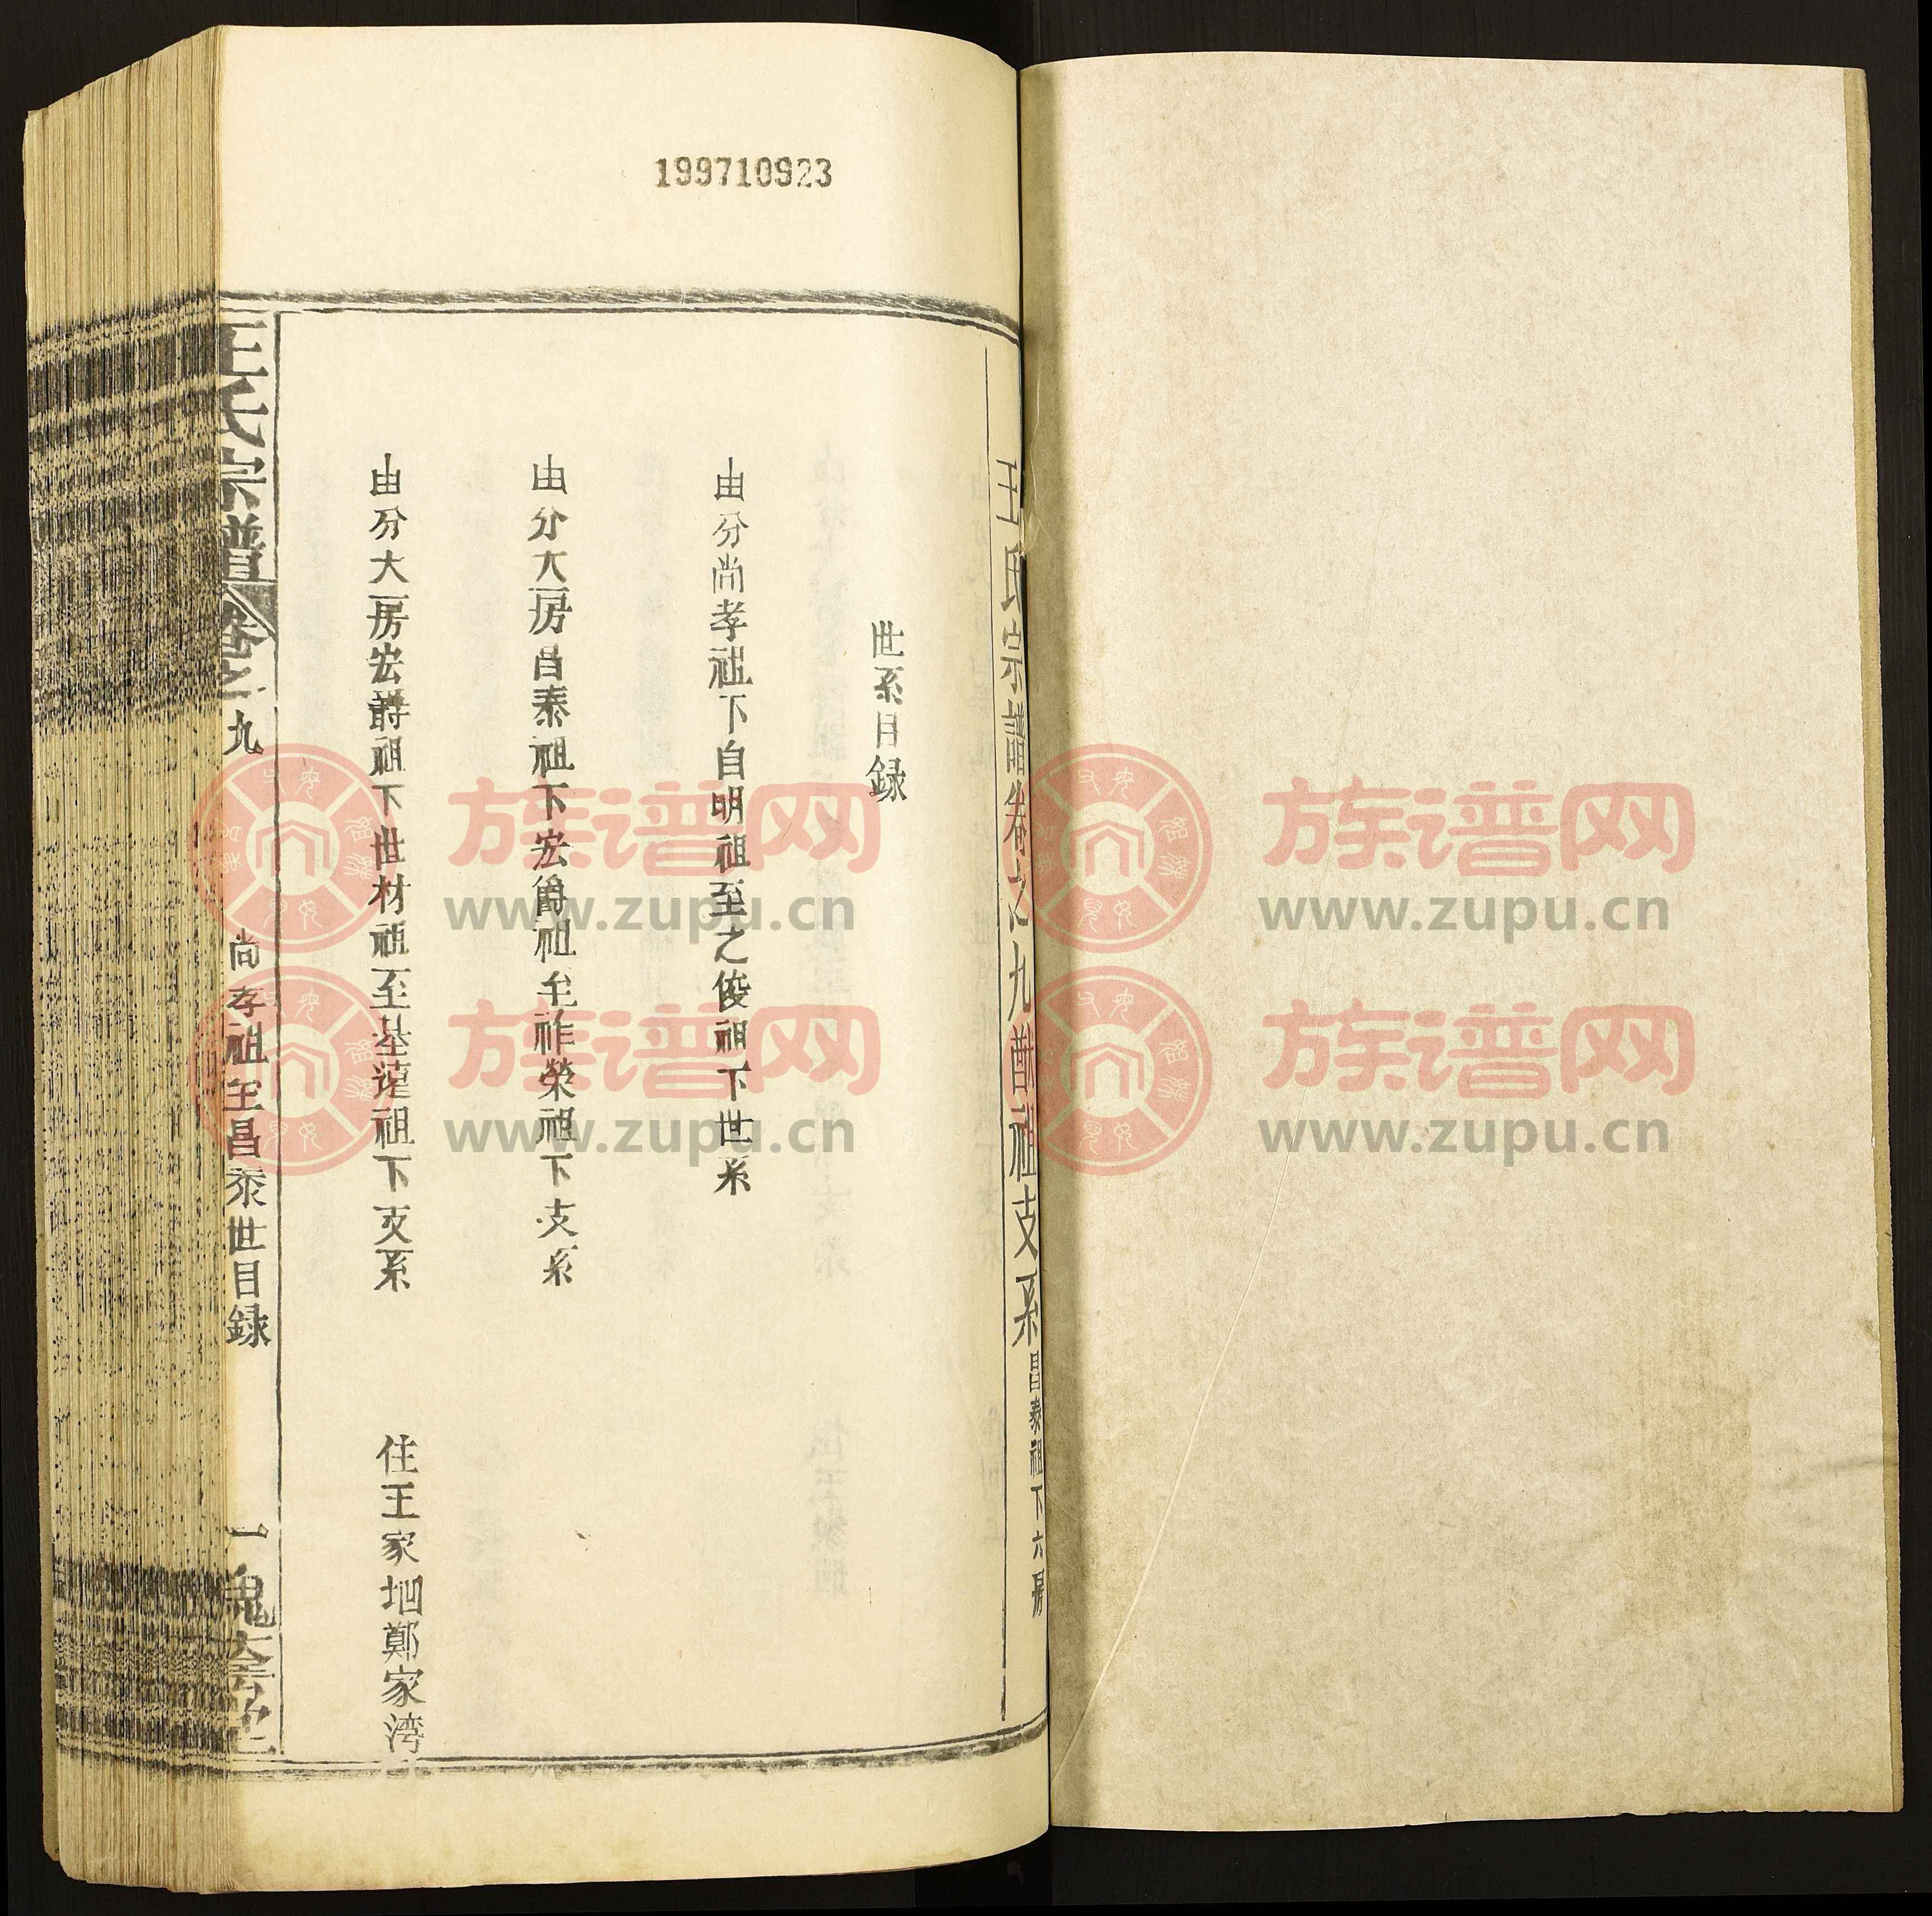 199710923
王氏宗譜卷之九猷祖支系昌泰祖下六房
世系目録
由分尚孝祖下自明祖至之俊祖下世系
由分大房昌泰祖下宏爵祖至祚榮祖下支系
由分大房宏爵祖下世材祖至基蓮祖下支系 住王家堌鄭家湾
王氏宗譜 卷之九 尚孝祖至昌泰世目録 一 槐
族谱网
www.zupu.cn
族谱网
www.zupu.cn
族谱网
www.zupu.cn
族谱网
www.zupu.cn